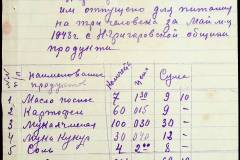 им отпущено для питания
на три человека за Май м-ц
1943г с Н Григоровской общины
продукта.
№ п/п наименование продуктов Количест цена Сума
1 Масло постное 7 130 9 10
2 Картофель 60 015 9 -
3 Мука ячменая 100 030 30 -
4 Мука кукур 30 040 12 -
5 Соль 4 2 00 8 -